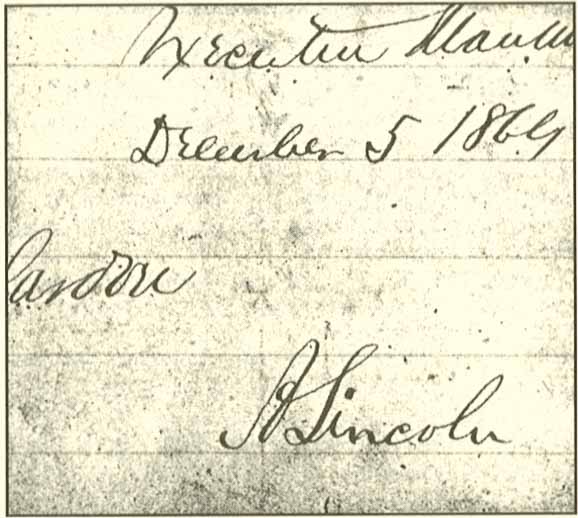 Executive Mansi
December 5 1864
Pardon
A Lincoln